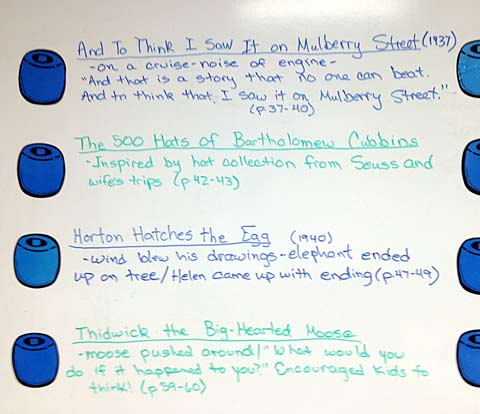 And To Think I Saw It on Mulberry Street (1937)
-on a cruise-noise of engine-
"And that is a story that no one can beat.
And to think that I saw it on Mulberry Street."-
(p.37-40)
The 500 Hats of Bartholomew Cubbins
-Inspired by hat collection from Seuss and
wife's trips (p.42-43)
Horton Hatches the Egg (1940)
-wind blew his drawings-elephant ended
up on tree/Helen came up with ending (p.47-49)
Thidwick the Big-Hearted Moose
-moose pushed around/"What would you
do if it happened to you?" Encouraged kids to
think! (p.59-60)